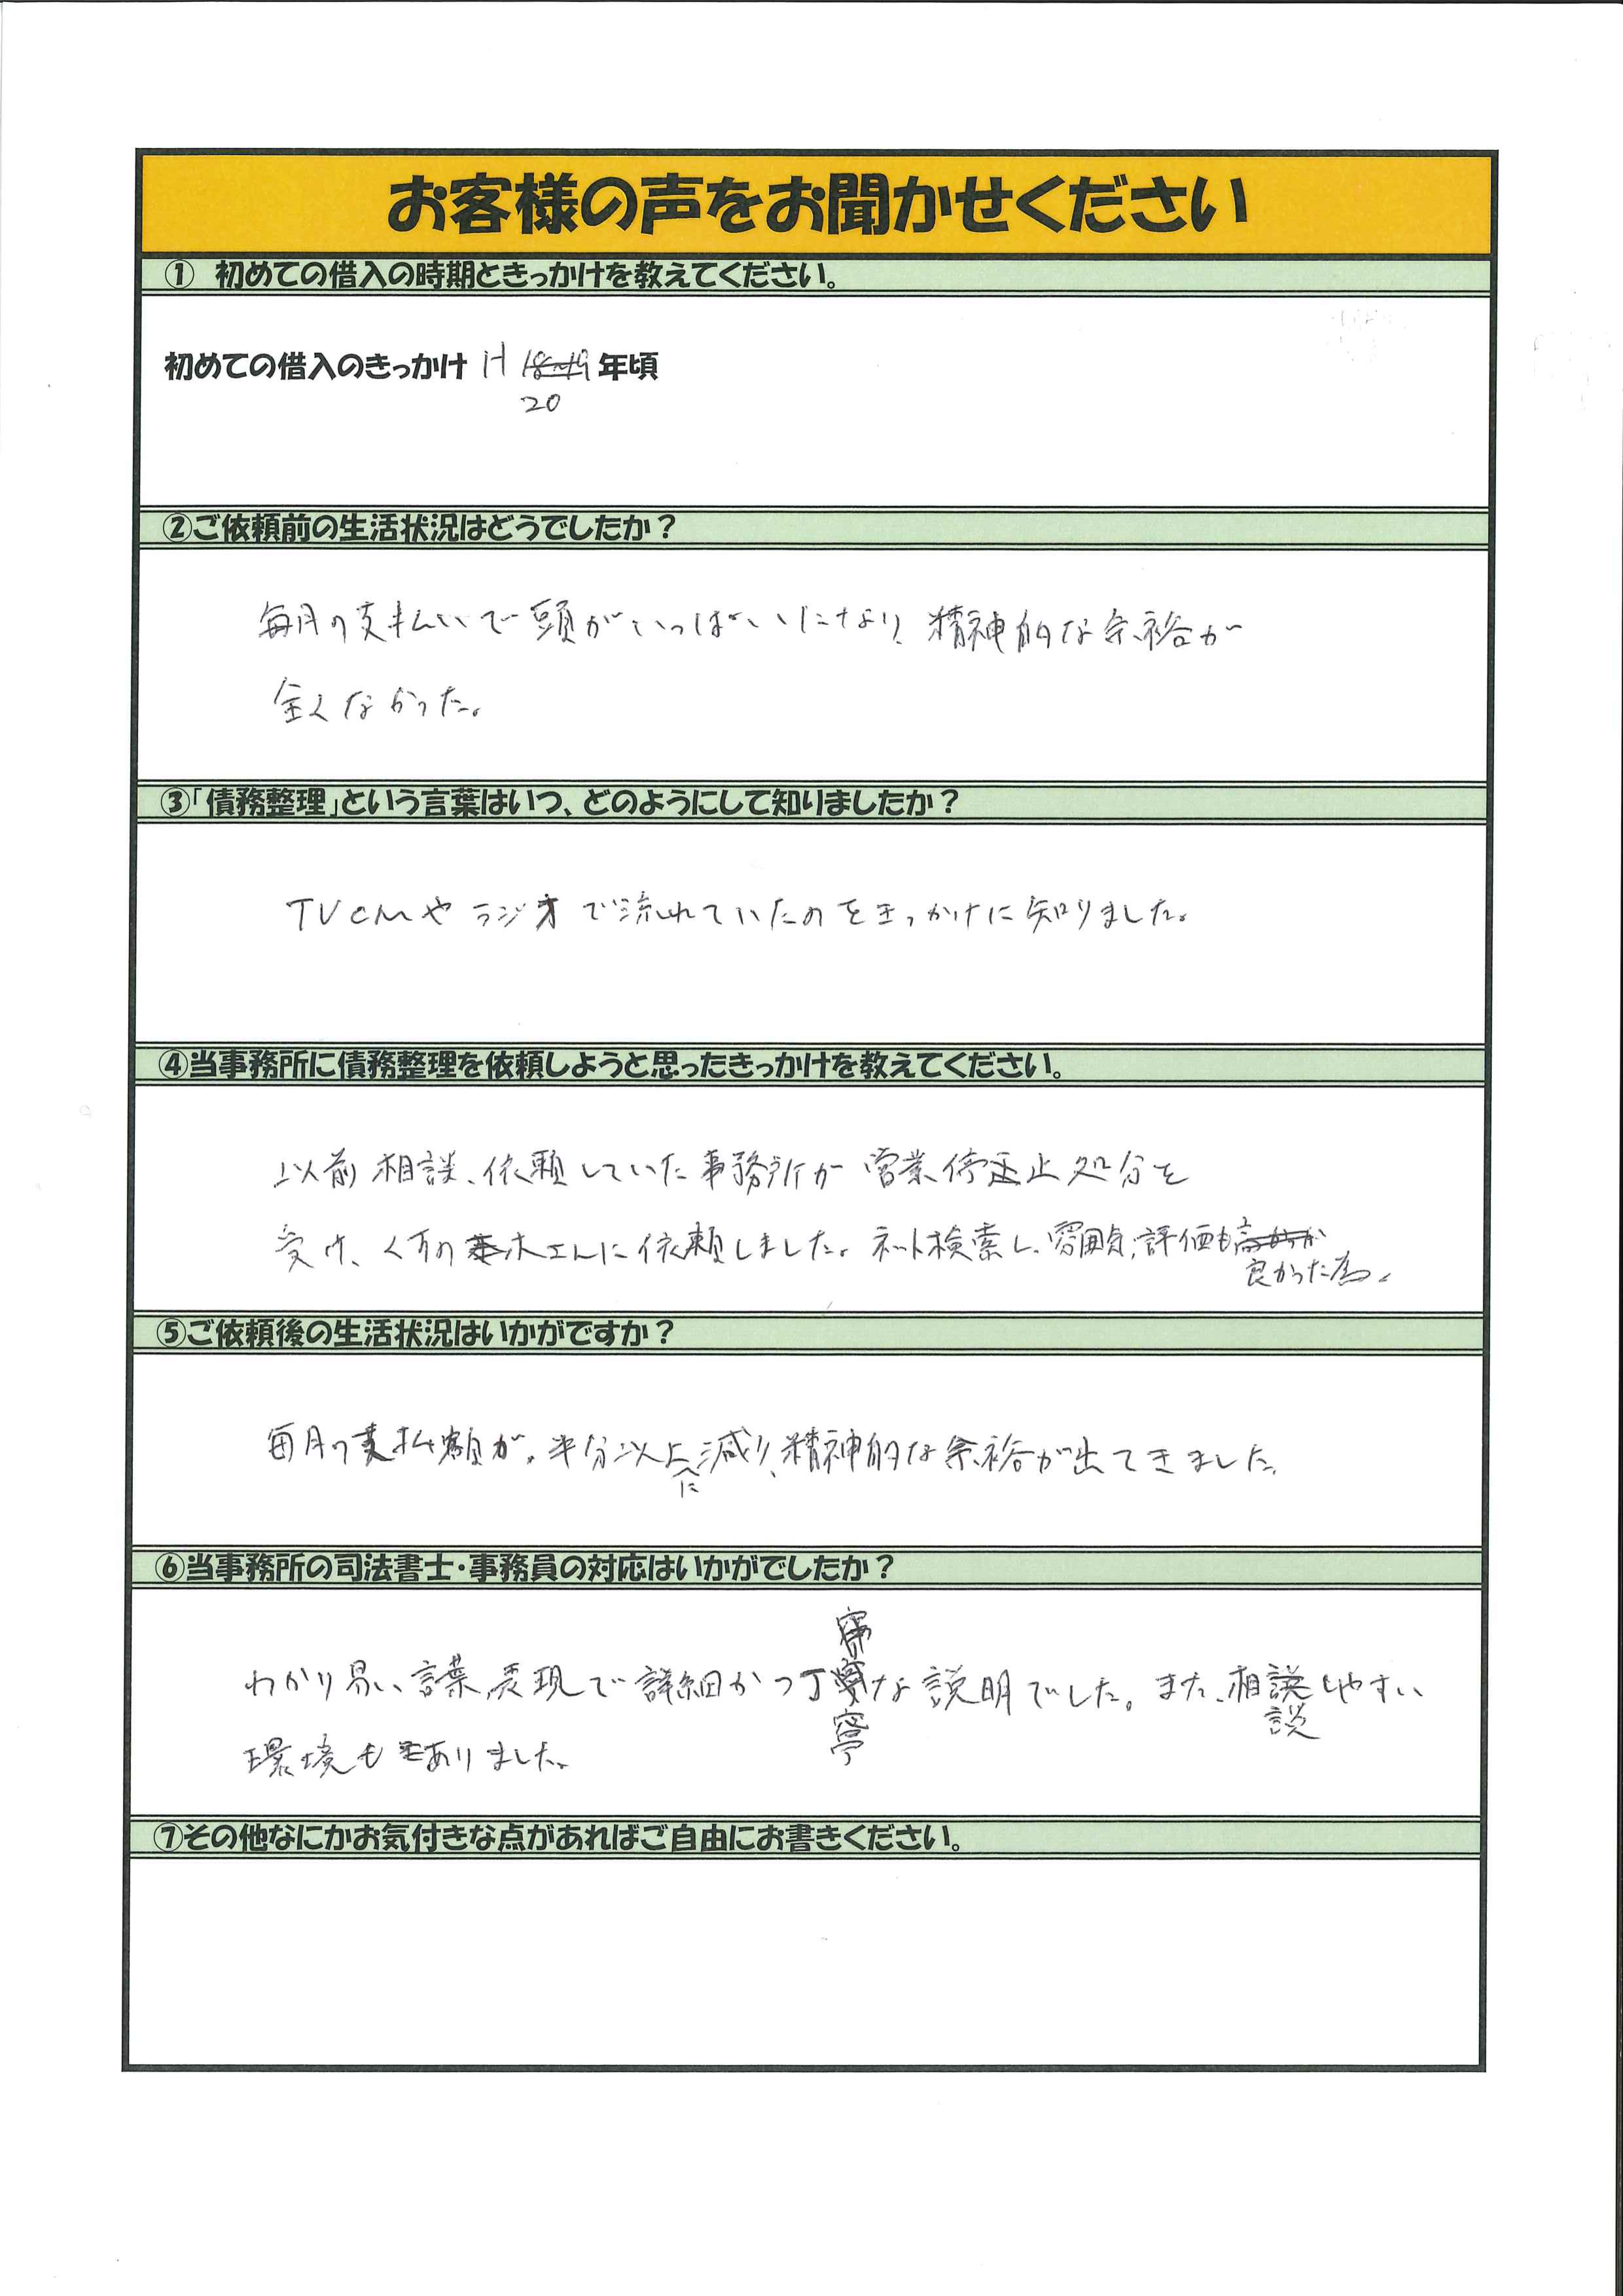 お客様の声をお聞かせください
① 初めての借入の時期ときっかけを教えてください。
初めての借入のきっかけ H 18~19 年頃
20
②ご依頼前の生活状況はどうでしたか？
毎月の支払いで頭がいっぱいになり、精神的な余裕が
全くなかった。
③「債務整理」という言葉はいつ、どのようにして知りましたか？
TVCMやラジオで流れていたのをきっかけに知りました。
④当事務所に債務整理を依頼しようと思ったきっかけを教えてください。
以前相談、依頼していた事務所が営業停止処分を
受け、に依頼しました。ネット検索し、雰囲気、評価も
良かった為。
⑤ご依頼後の生活状況はいかがですか？
毎月の支払額が、半分以上に減り、精神的な余裕が出てきました。
⑥当事務所の司法書士・事務員の対応はいかがでしたか？
わかり易い言葉、表現で詳細かつ丁寧な説明でした。また、相談しやすい
環境もありました。
⑦その他なにかお気付きな点があればご自由にお書きください。